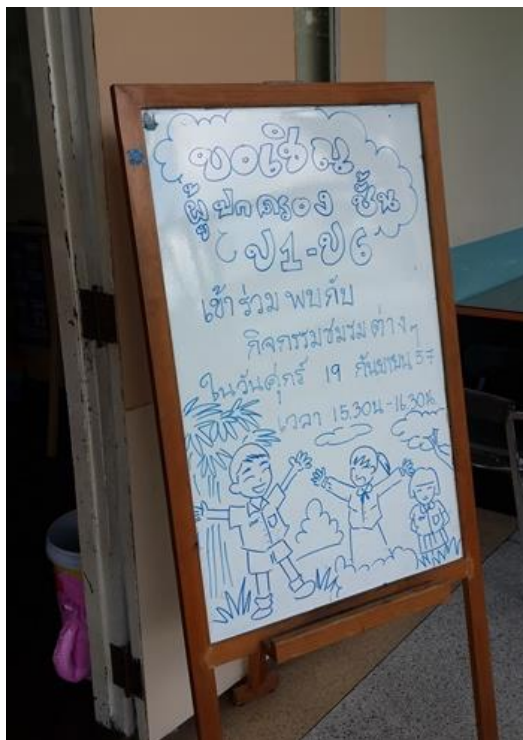 ขอเชิญ
ผู้ปกครอง ชั้น
ป1-ป6
เข้าร่วม พบกับ
กิจกรรมชมรม ต่างๆ
ในวันศุกร์ 19 กันยายน 57
เวลา 15.30น-16.30น.